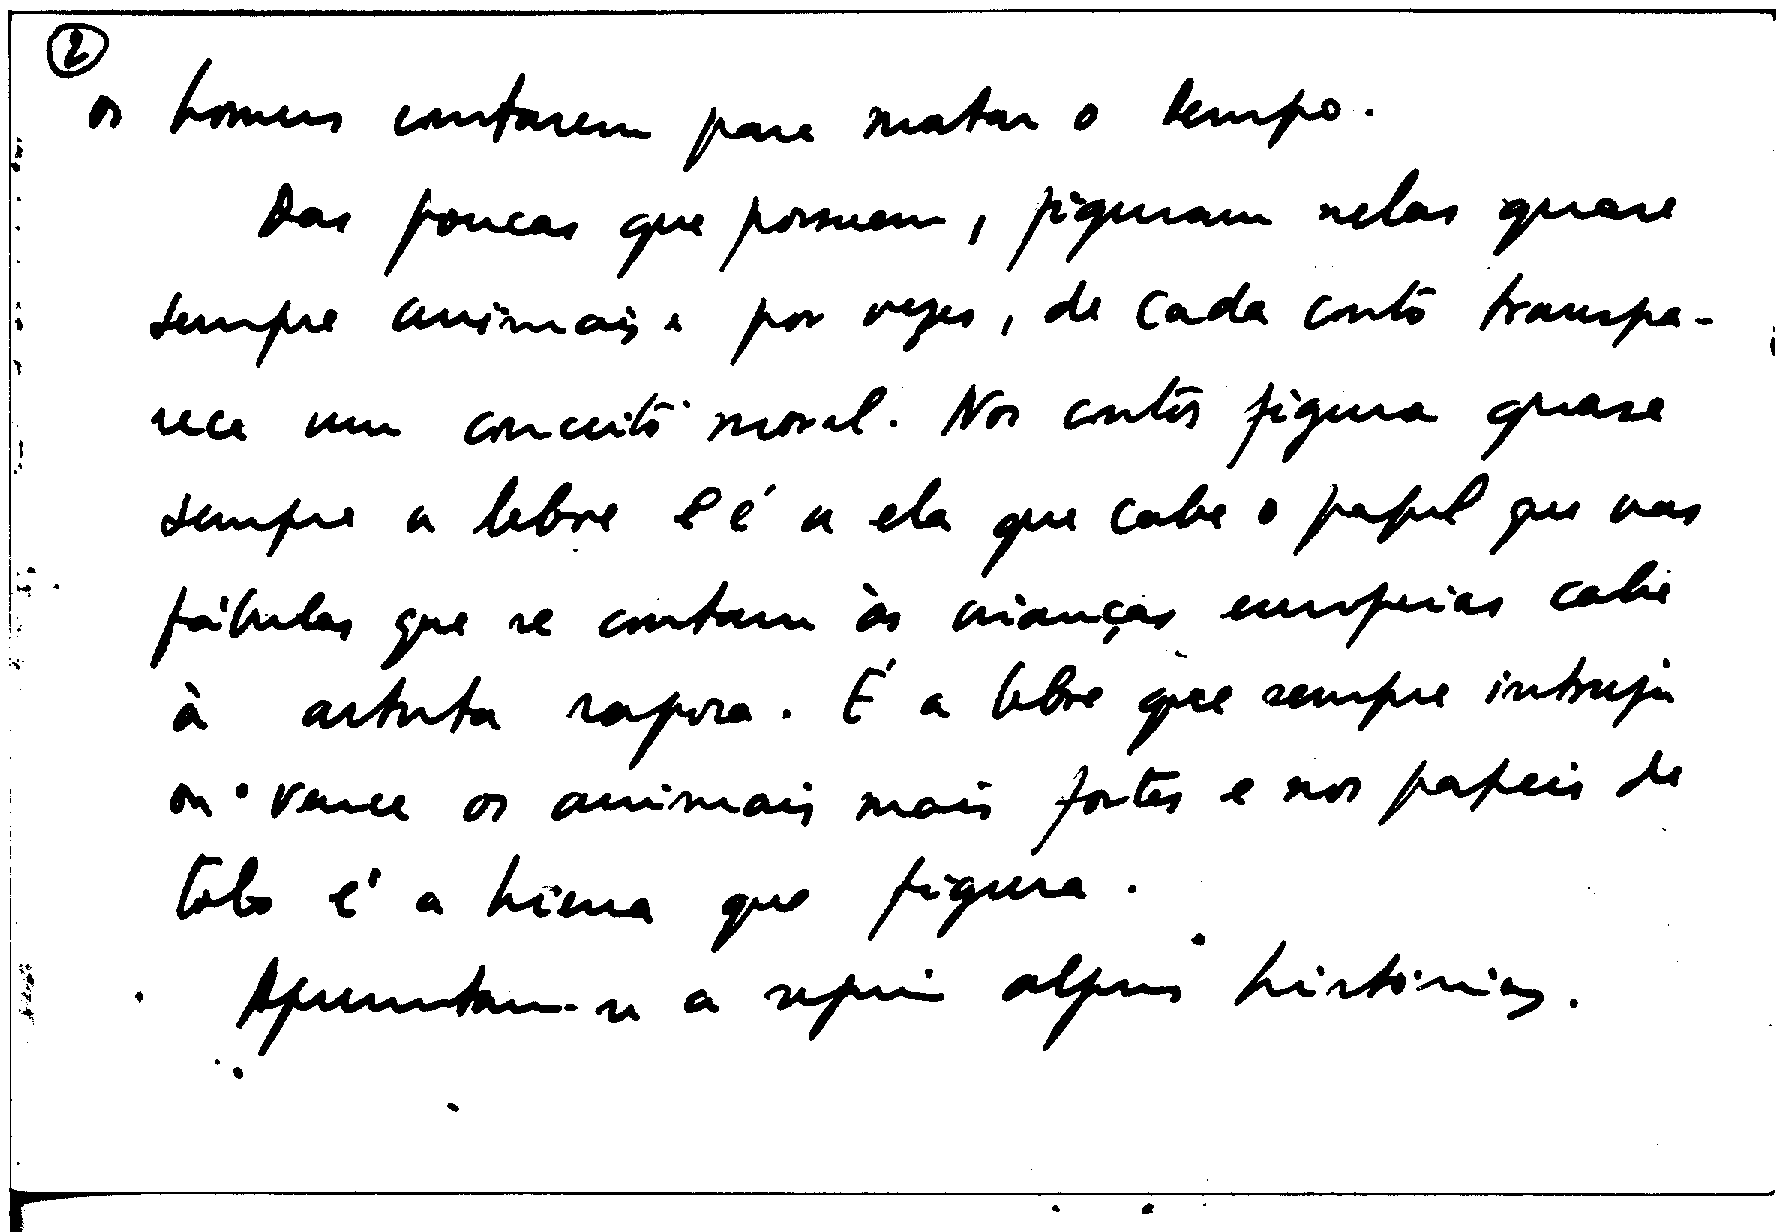 2
os homens contarem para matar o tempo.
Das poucas que possuem, figuram nelas quase
sempre animais e por vezes, de cada conto transpa-
rece um conceito moral. Nos contos figura quase
sempre a lebre e é a ela que cabe o papel que nas
fábulas que se contam às crianças europeias cabe
à astuta raposa. É a lebre que sempre intruja
ou vence os animais mais fortes e nos papeis de
tolo é a hiena que figura.
Apresentam-se a seguir algumas histórias.